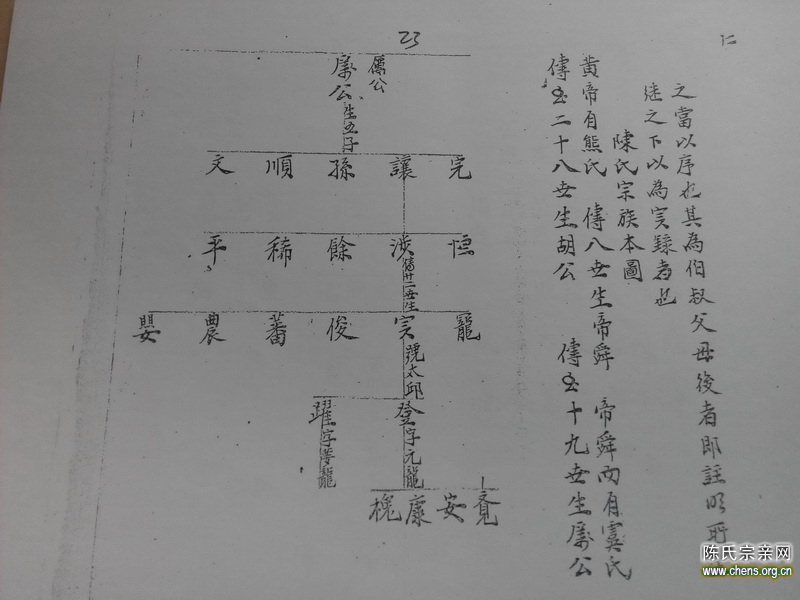 23
仁
之當以序也其為伯叔父母後者即註明所
進之下以為实錄者也
陳氏宗族本圖
黃帝有熊氏 傳八世生帝舜 帝舜 有虞氏
傳至二十八世生胡公 傳至十九世生厲公
厲公
厲公生五子
完 讓 孫 順 文
恒 涉 餘 稀 平
傳廿二世生
龍 实 俊 蕃 農 嬰
號太邱
登字元龍
躍字
安 康 槐
陈氏宗亲网
www.chens.org.cn